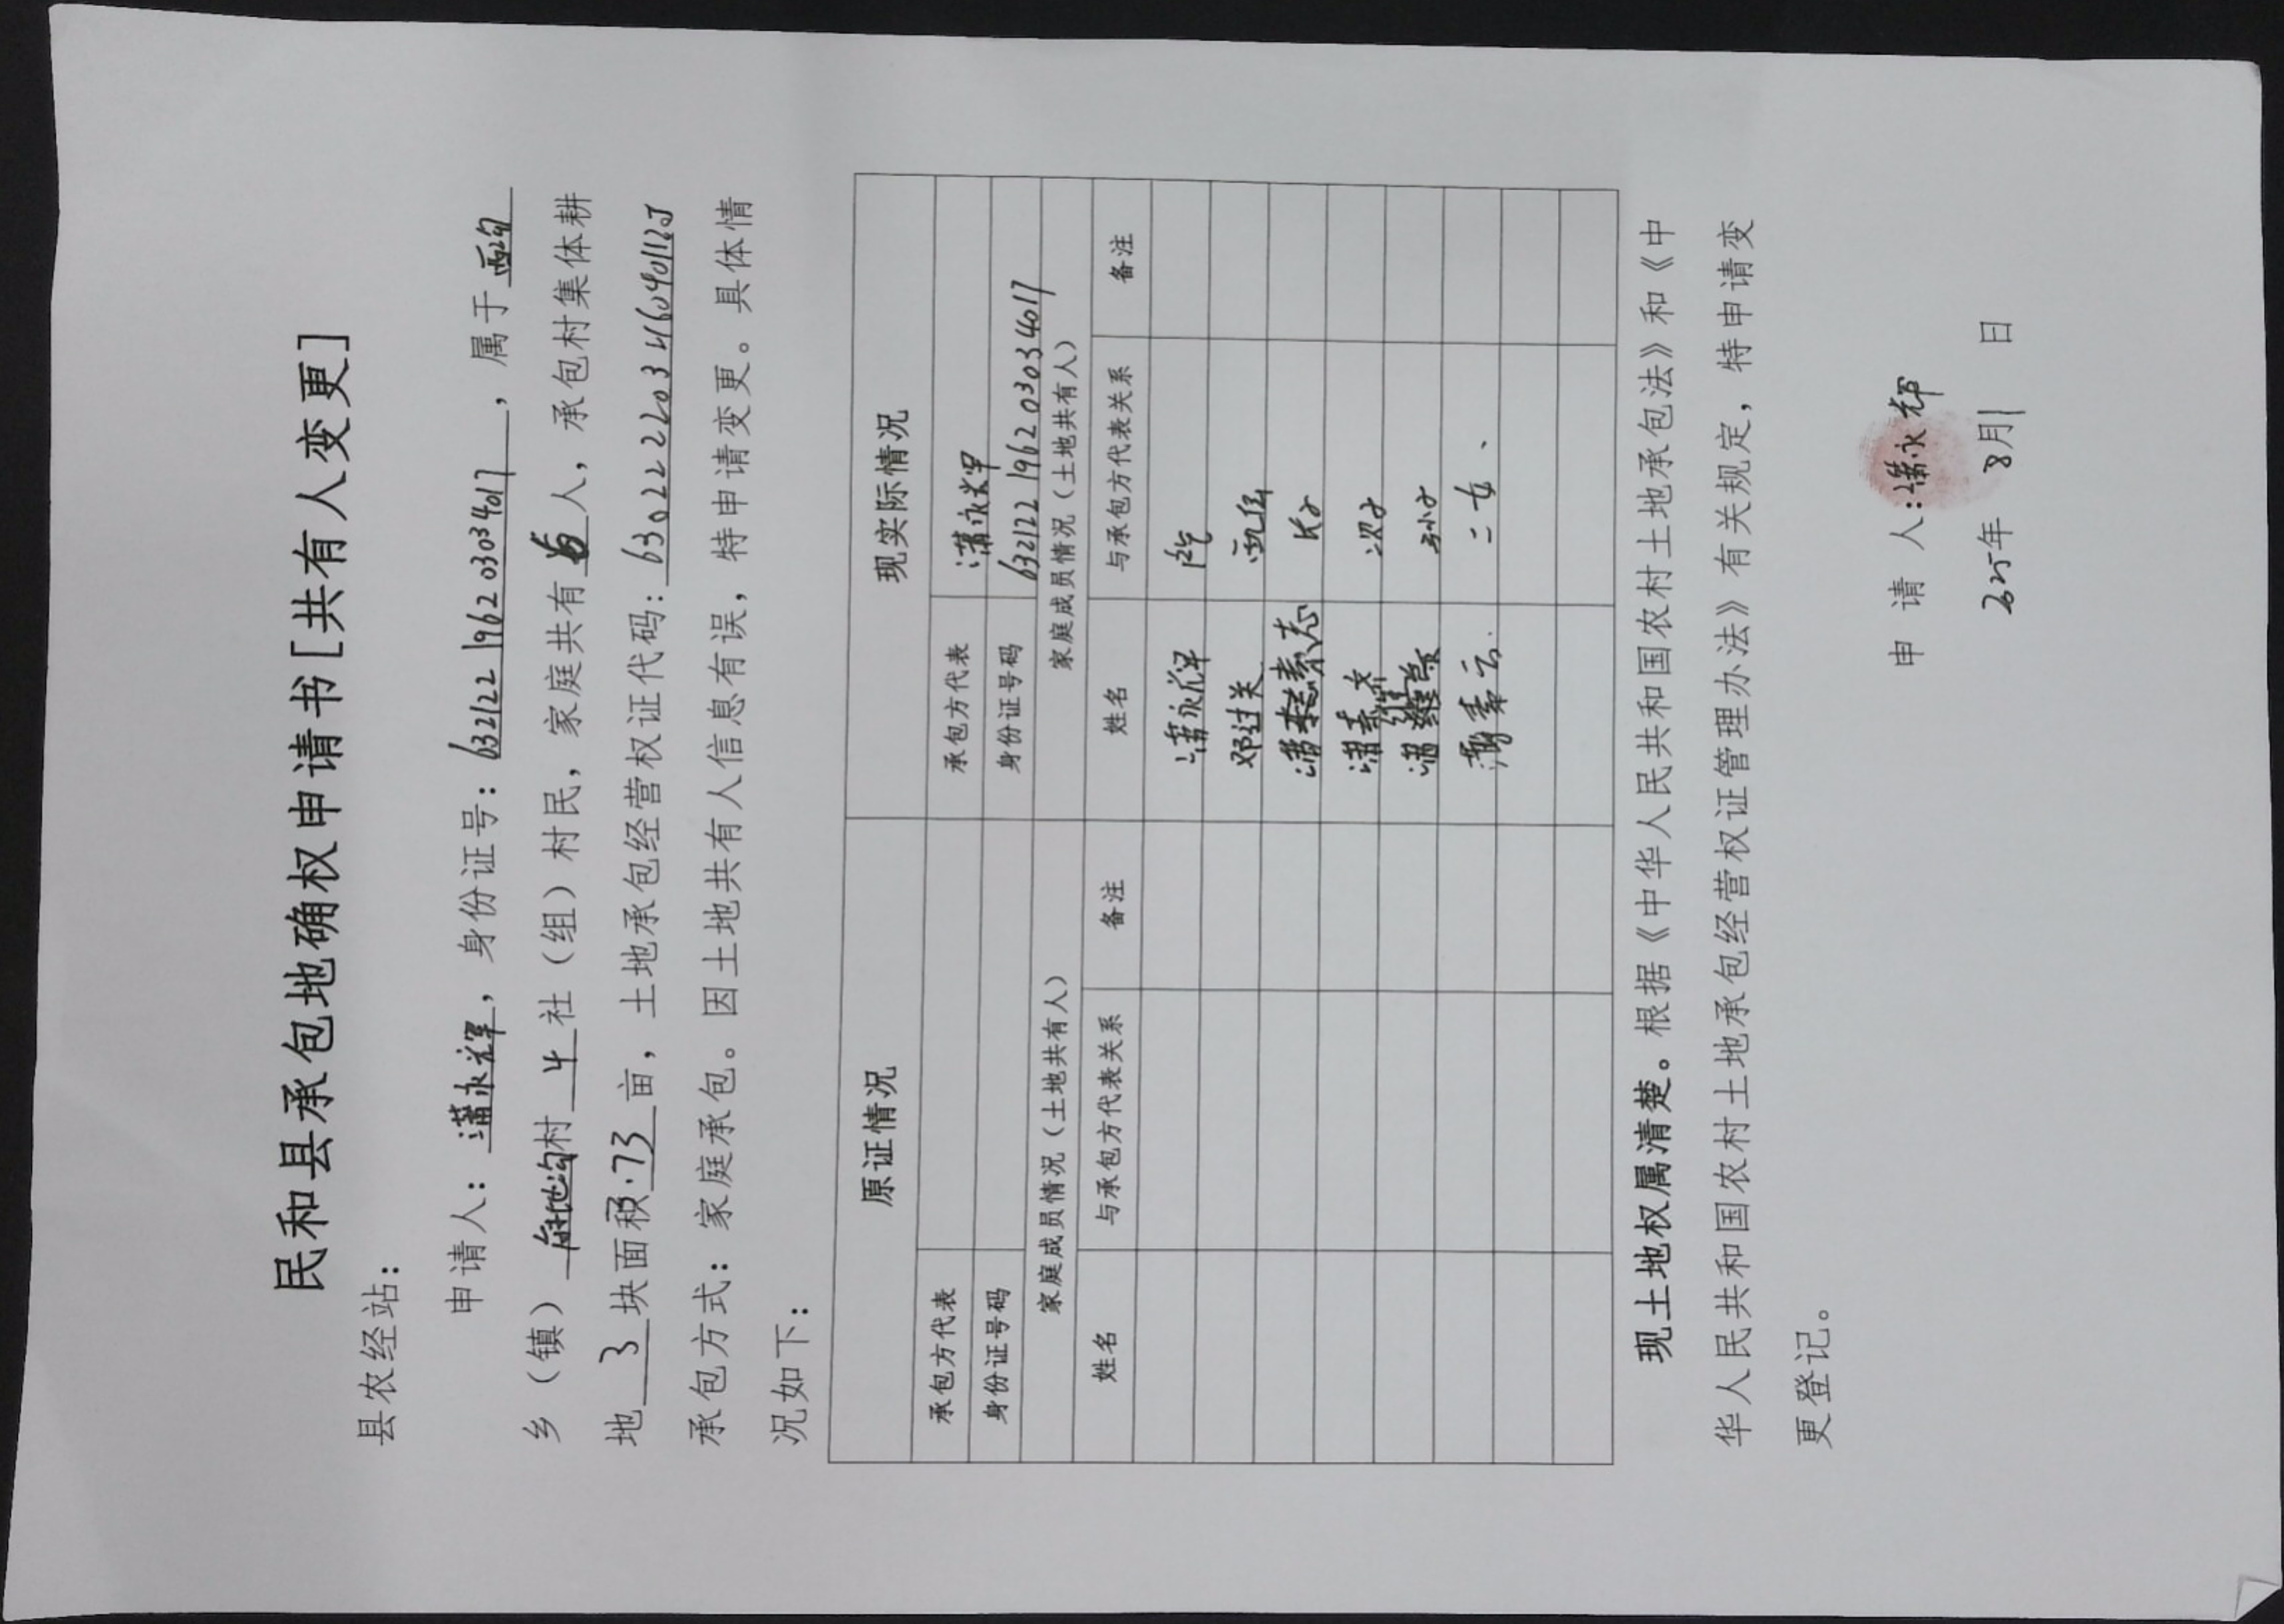 民和县承包地确权申请书[共有人变更]
县农经站：
申请人：潇永辉，身份证号：632122196203034017，属于西沟
乡（镇）村 4 社（组）村民，家庭共有 6 人，承包村集体耕
地 3 块面积3.73 亩，土地承包经营权证代码：
承包方式：家庭承包。因土地共有人信息有误，特申请变更。具体情
况如下：
原证情况 现实际情况
承包方代表 承包方代表 潇永辉
身份证号码 身份证号码 632122196203034017
家庭成员情况（土地共有人） 家庭成员情况（土地共有人）
姓名 与承包方代表关系 备注 姓名 与承包方代表关系 备注
潇永辉 户主
邓过关 配偶
潇素志 长子
潇素 次子
潇维 孙子
潇素云 二女
现土地权属清楚。根据《中华人民共和国农村土地承包法》和《中
华人民共和国农村土地承包经营权证管理办法》有关规定，特申请变
更登记。
申 请 人：潇永辉
2025年 8月1 日